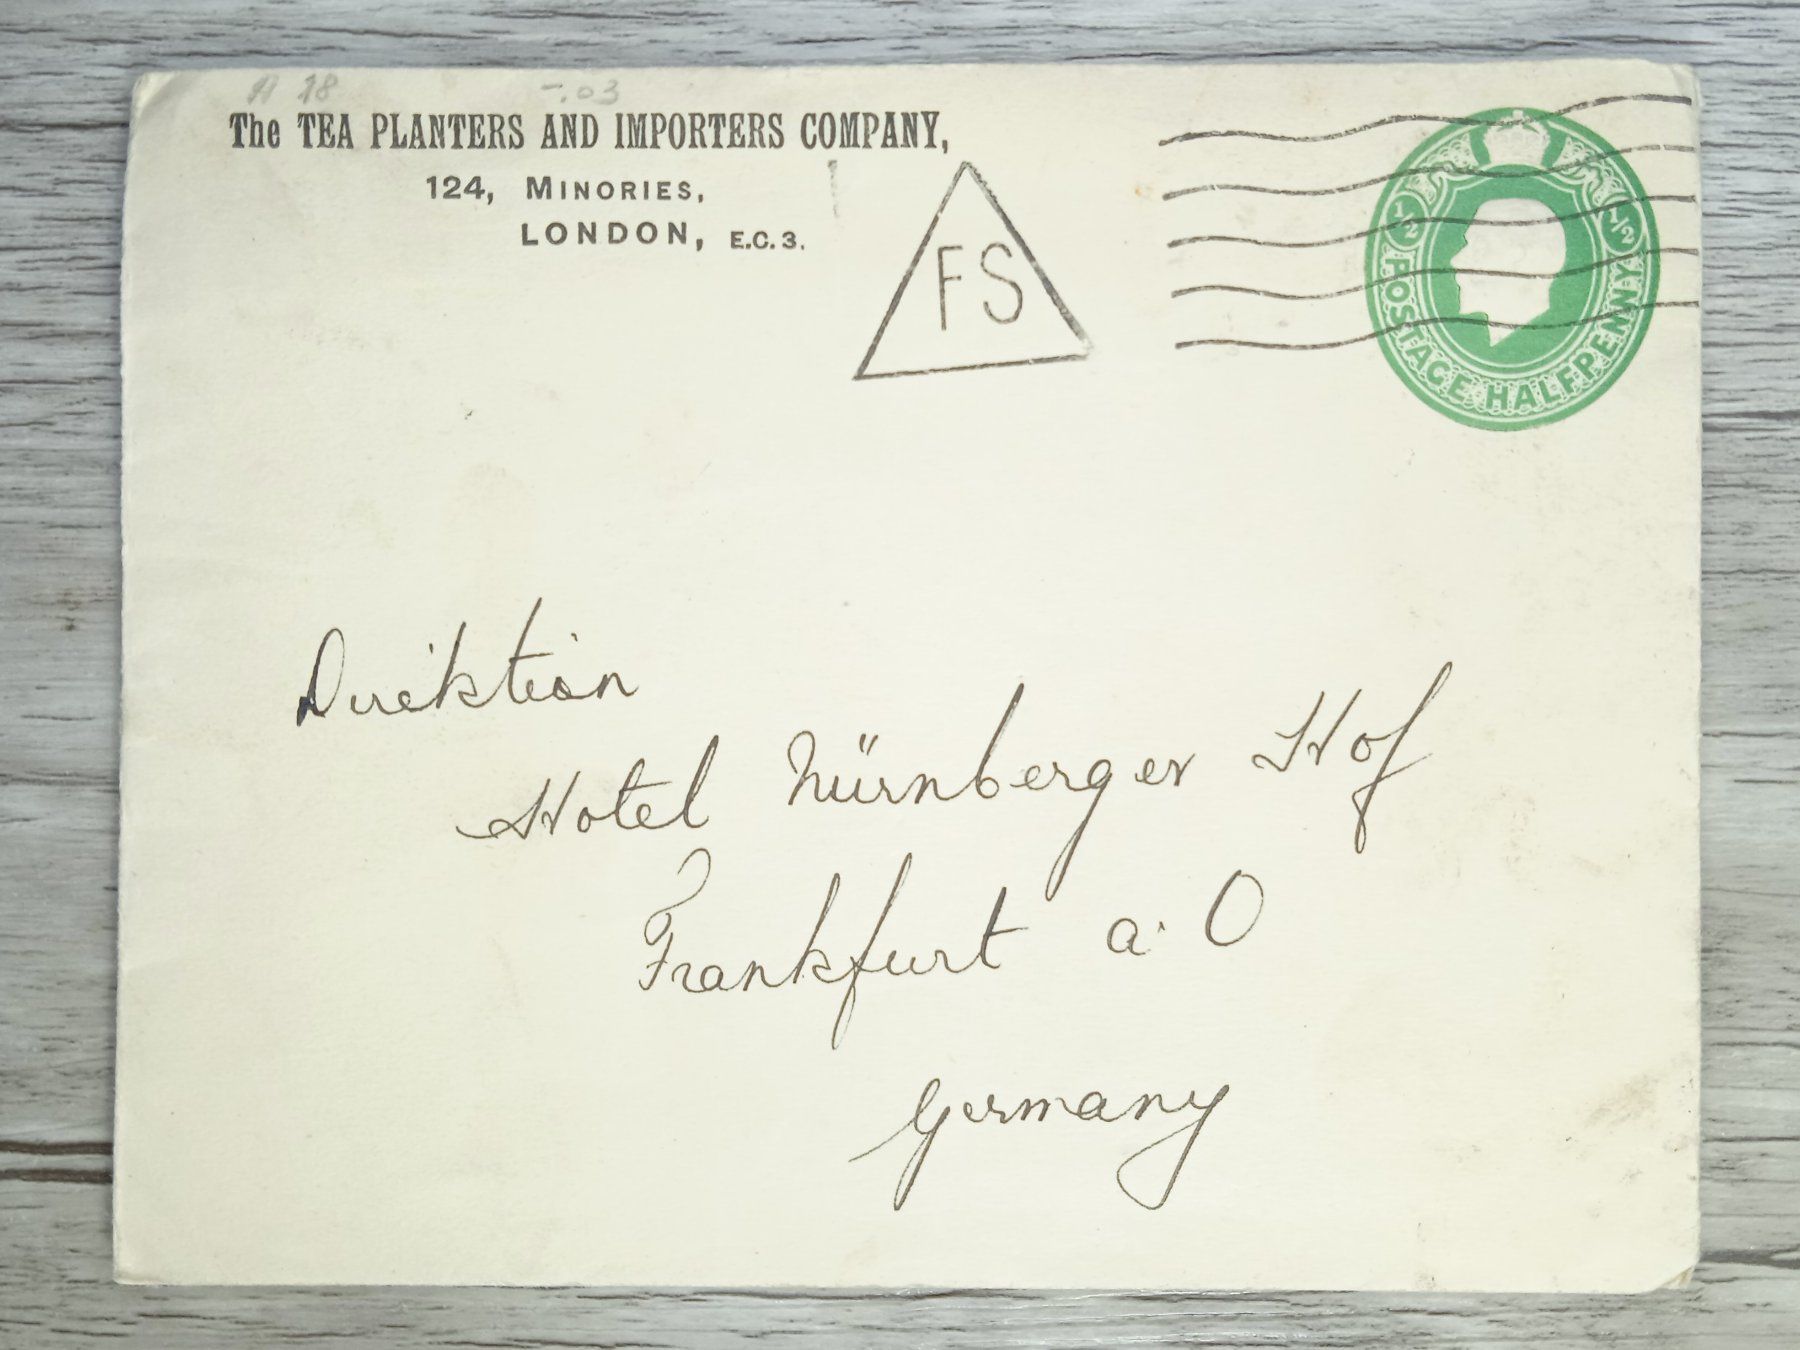 A 18 -.03
The TEA PLANTERS AND IMPORTERS COMPANY,
124, MINORIES,
LONDON, E.C.3.
FS
1/2 1/2
POSTAGE HALFPENNY
Direktion
Hotel Nürnberger Hof
Frankfurt a. O
Germany